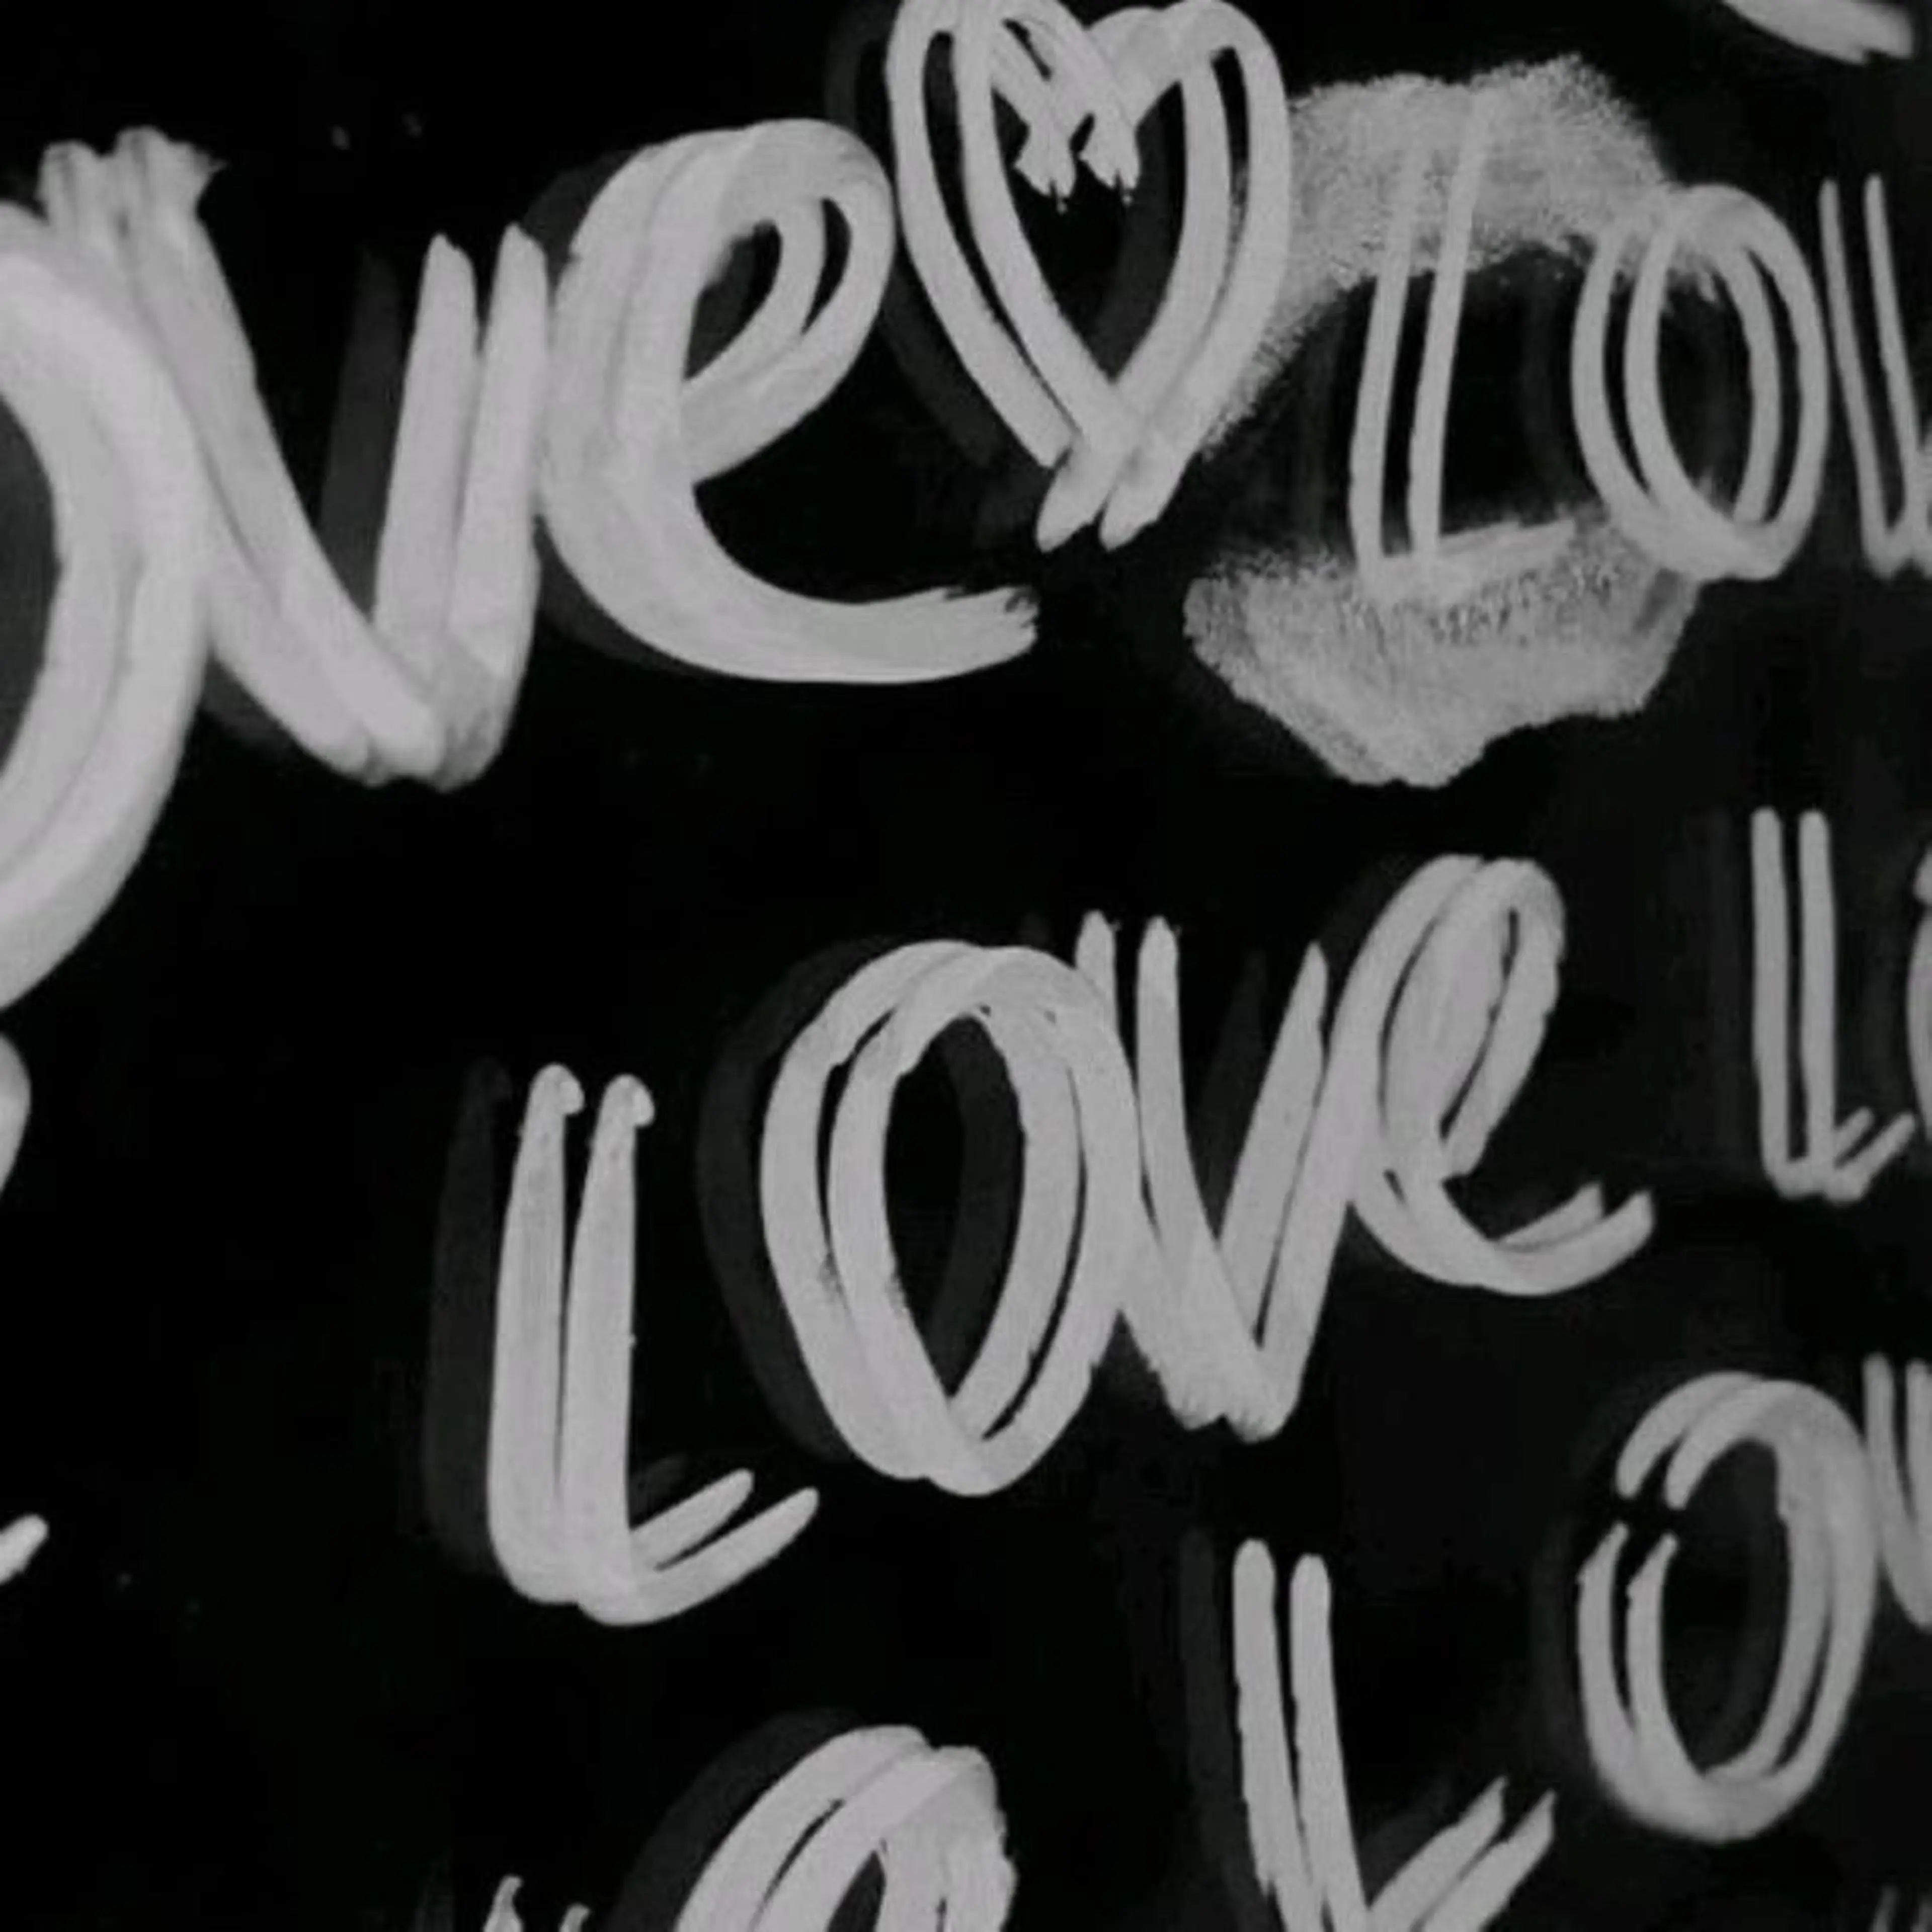 ove Lov
Love L
L ov